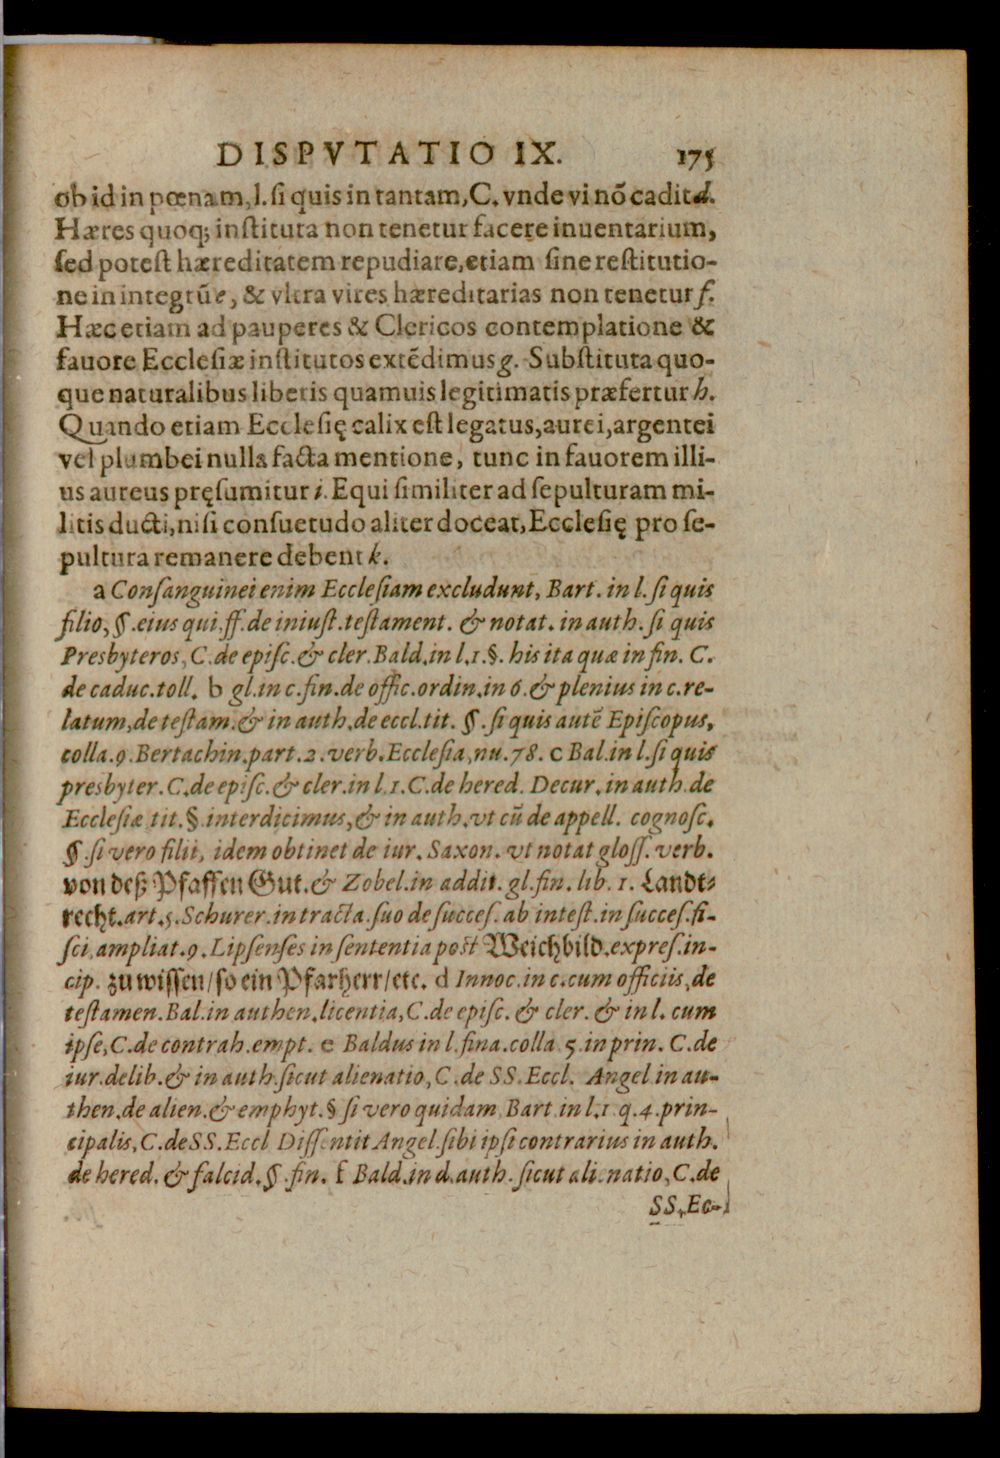 DISPVTATIO IX. 175
ob id in pœnam, l. ſi quis in tantam, C. vnde vi nõ cadit d.
Hæres quoq; inſtituta non tenetur facere inuentarium,
ſed poteſt hæreditatem repudiare, etiam ſine reſtitutio-
ne in integrũ e, & vltra vires hæreditarias non tenetur f.
Hæc etiam ad pauperes & Clericos contemplatione &
fauore Eccleſiæ inſtitutos extẽdimus g. Subſtituta quo-
que naturalibus liberis quamuis legitimatis præfertur h.
Quando etiam Eccleſię calix eſt legatus, aurei, argentei
vel plumbei nulla facta mentione, tunc in fauorem illi-
us aureus pręſumitur i. Equi ſimiliter ad ſepulturam mi-
litis ducti, niſi conſuetudo aliter doceat, Eccleſię pro ſe-
pultura remanere debent k.
a Conſanguinei enim Eccleſiam excludunt, Bart. in l. ſi quis
filio, §. eius qui, ff. de iniuſt. teſtament. & notat. in auth. ſi quis
Presbyteros, C. de epiſc. & cler. Bald. in l. 1. §. his ita quæ in fin. C.
de caduc. toll. b gl. in c. fin. de offic. ordin. in 6. & plenius in c. re-
latum, de teſtam. & in auth. de eccl. tit. §. ſi quis autẽ Epiſcopus,
colla. 9. Bertachin. part. 2. verb. Eccleſia, nu. 78. c Bal. in l. ſi quis
presbyter. C. de epiſc. & cler. in l. 1. C. de hered. Decur. in auth. de
Eccleſiæ tit. § interdicimus, & in auth. vt cũ de appell. cognoſc.
§. ſi vero filii, idem obtinet de iur. Saxon. vt notat gloſſ. verb.
von deß Pfaffen Gut. & Zobel. in addit. gl. fin. lib. 1. Landt-
recht. art. 5. Schurer. in tracta. ſuo de ſucceſ. ab inteſt. in ſucceſ. fi-
ſci, ampliat. 9. Lipſenſes in ſententia poſt Weichbild. expreſ. in-
cip. zu wiſſen / ſo ein Pfarherr / etc. d Innoc. in c. cum officiis, de
teſtamen. Bal. in authen. licentia, C. de epiſc. & cler. & in l. cum
ipſe, C. de contrah. empt. e Baldus in l. fina. colla. 5. in prin. C. de
iur. delib. & in auth. ſicut alienatio, C. de SS. Eccl. Angel in au-
then. de alien. & emphyt. § ſi vero quidam Bart. in l. 1. q. 4. prin-
cipalis, C. de SS. Eccl Diſſentit Angel. ſibi ipſi contrarius in auth.
de hered. & falcid. §. fin. f Bald. in d. auth. ſicut alienatio, C. de
SS. Ec-